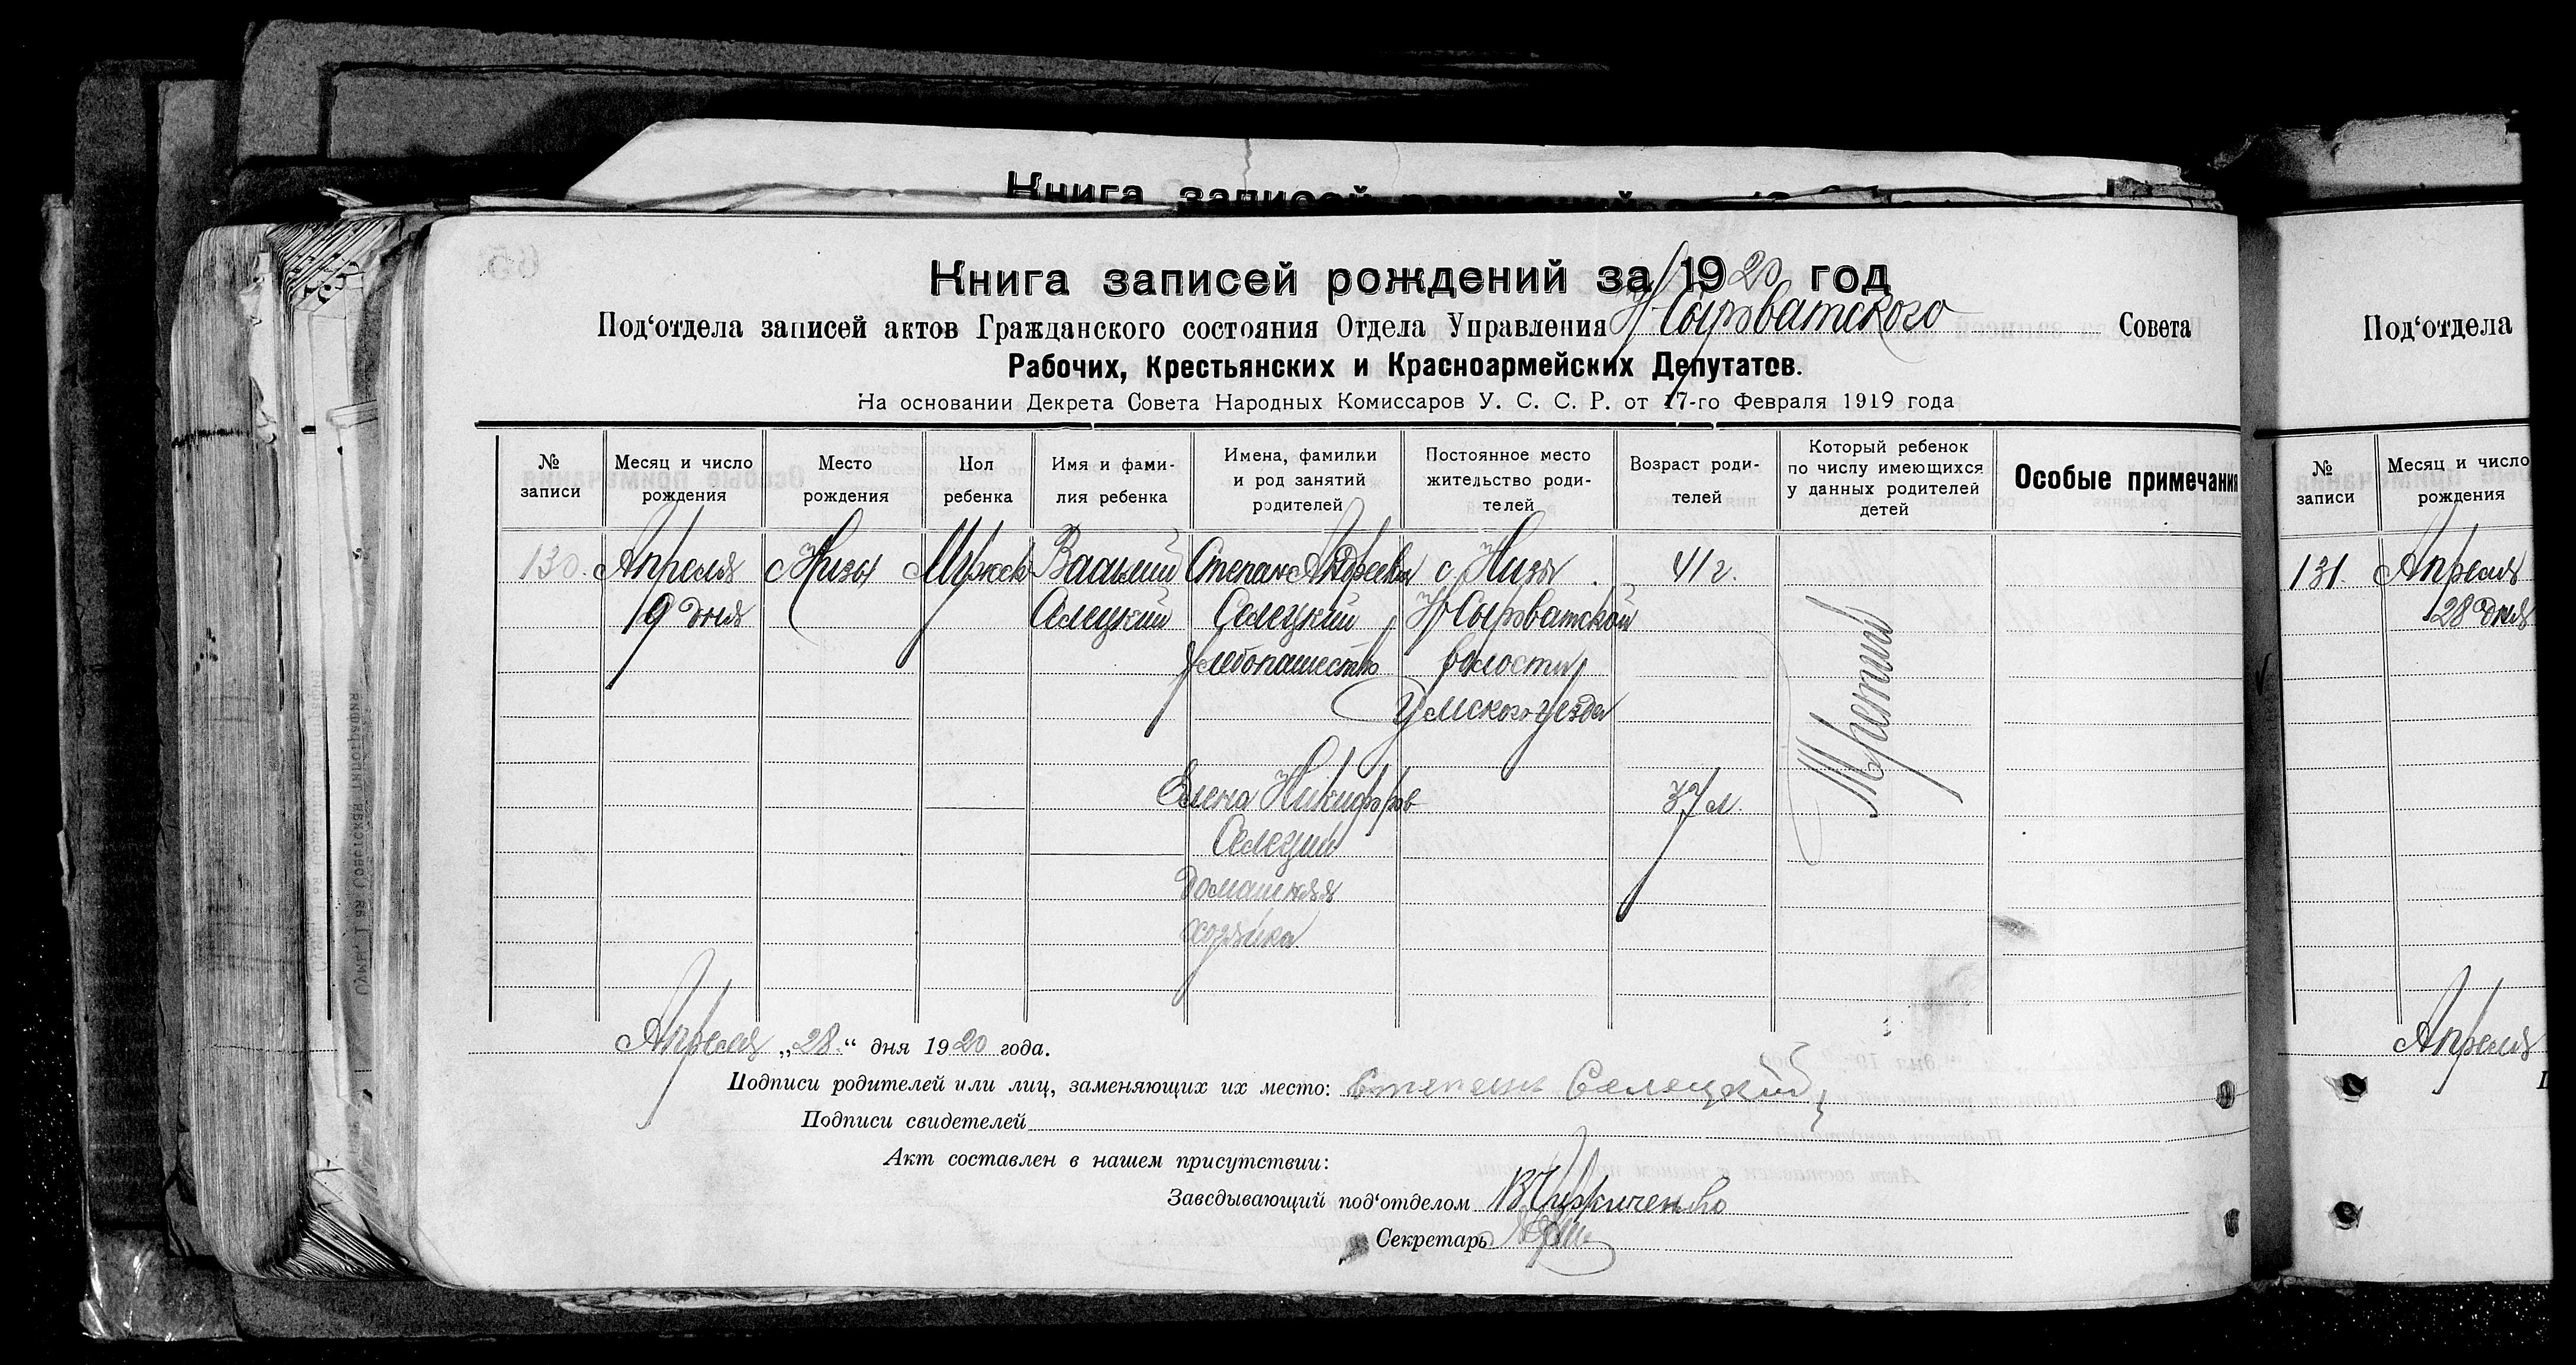 Книга записей рождений за 1920 год
Под'отдела записей актов Гражданского состояния Отдела Управления Н-Сыроватского Совета
Рабочих, Крестьянских и Красноармейских Депутатов.
На основании Декрета Совета Народных Комиссаров У. С. С. Р. от 17-го Февраля 1919 года
№ записи
Месяц и число рождения
Место рождения
Пол ребенка
Имя и фами-
лия ребенка
Имена, фамилии
и род занятий
родителей
Постоянное место
жительство роди-
телей
Возраст роди-
телей
Который ребенок
по числу имеющихся
у данных родителей
детей
Особые примечания
130. Апреля с Низы Мужск Василий Степан Андреевич с Низы 41 г. Третий
9 дня Селецкий Селецкий Н-Сыроватской
хлебопашество волости
Сумского уезда
Елена Никифоров 37 л.
Селецкий
домашняя
хозяйка
Апреля „28.“ дня 1920 года.
Подписи родителей или лиц, заменяющих их место: Степан Селецкий
Подписи свидетелей
Акт составлен в нашем присутствии:
Заведывающий под'отделом
Секретарь
Под'отдела
№ записи
Месяц и число рождения
131. Апреля
28 дня
Апреля